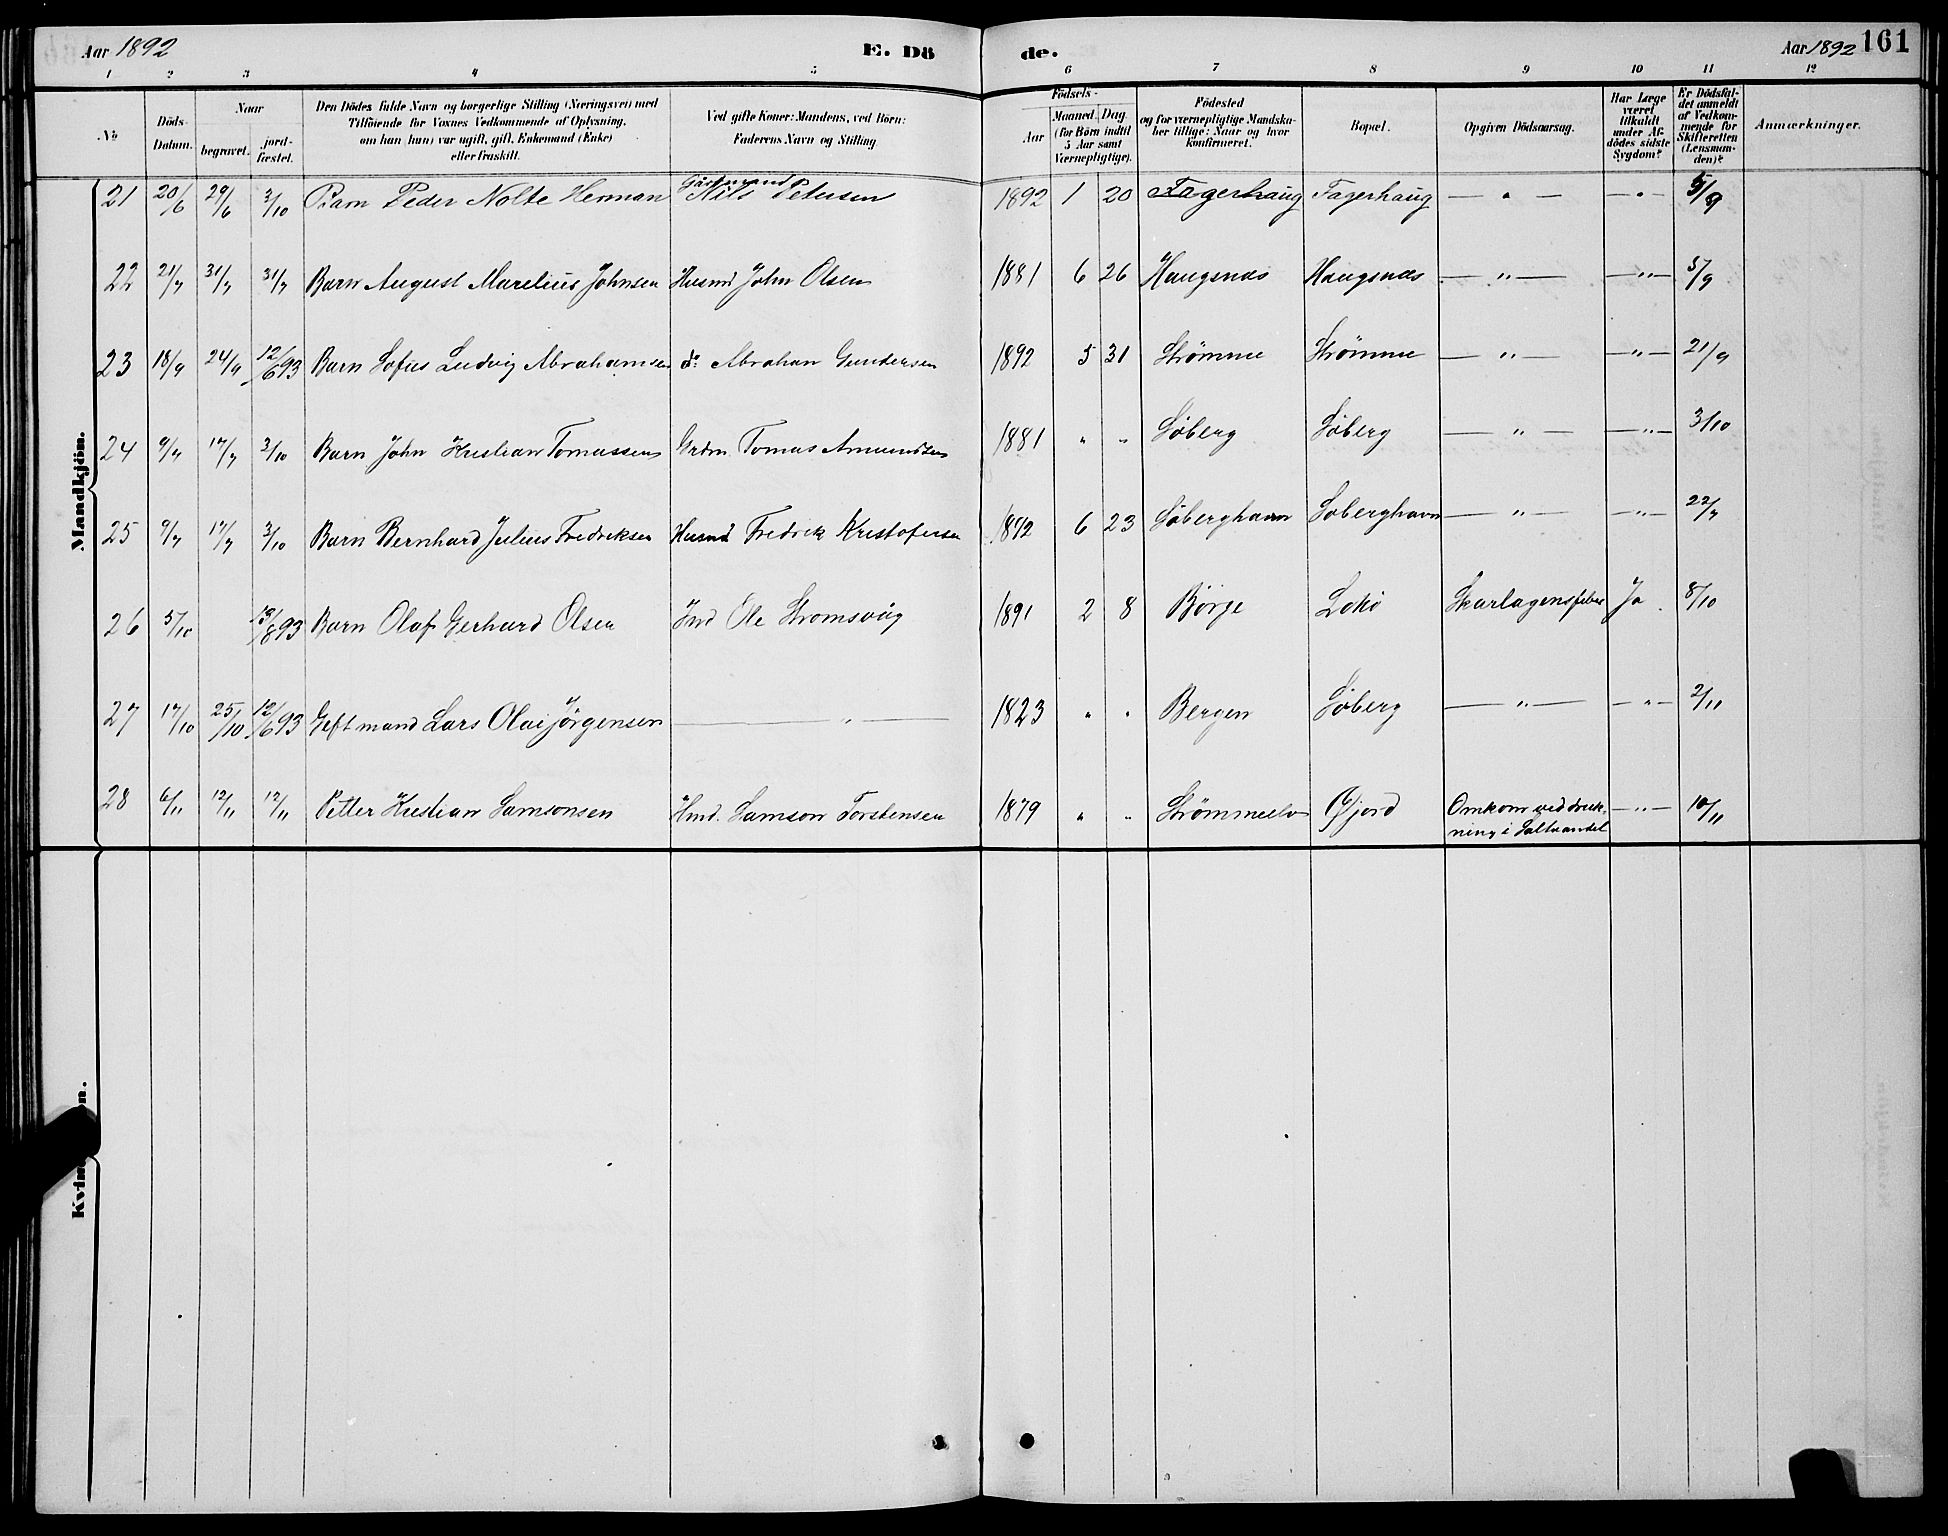 Aar 1892 E. Dö de. Aar 1892 161
1 2 3 4 5 6 7 8 9 10 11 12
No
Döds-Datum.
Naar begravet. jordfæstet.
Den Dödes fulde Navn og borgerlige Stilling (Næringsvei) med Tilföiende for Voxnes Vedkommende af Oplysning, om han (hun) var ugift, gift, Enkemand (Enke) eller fraskilt.
Ved gifte Koner: Mandens, ved Börn: Faderens Navn og Stilling.
Födsels- Aar Maaned. Dag (for Börn indtil 5 Aar samt Værnepligtige).
Födested og for værnepligtige Mandskaber tillige: Naar og hvor konfirmeret.
Bopæl.
Opgiven Dödsaarsag.
Har Læge været tilkaldt under Afdödes sidste Sygdom?
Er Dödsfaldet anmeldt af Vedkommende for Skifteretten (Lensmanden)?
Anmærkninger.
Mandkjön.
21 20/6 29/6 3/10 Barn Peder Nolte Herman Gårdmand Nils Petersen 1892 1 20 Fagerhaug Fagerhaug — " — — " — 5/9
22 21/7 31/7 31/7 Barn August Marelius Johnsen Husmd John Olsen 1881 6 26 Haugsnas Haugsnas — " — — " — 5/9
23 18/9 24/9 12/6 93 Barn Sofus Ludvig Abrahamsen do Abrahan Gundersen 1892 5 31 Strømme Strømme — " — — " — 21/9
24 9/7 17/7 3/10 Barn John Kristian Tomassen Grdm. Tomas Amundsen 1881 " " Söberg Söberg — " — — " — 3/10
25 9/7 17/7 3/10 Barn Bernhard Julius Fredriksen Husmd Fredrik Kristofersen 1892 6 23 Söberghavn Soberghavn — " — — " — 22/7
26 5/10 13/8 93 Barn Olaf Gerhard Olsen Ind Ole Stromsvåg 1891 2 8 Börge Lokö Skarlagensfeber Ja. 8/10
27 17/10 25/10 12/6 93 Gift mand Lars Olai Jörgensen — " — 1823 " " Bergen Söberg — " — — " — 2/11
28 6/11 12/11 12/11 Petter Kristian Samsonsen Hmd. Samson Torstensen 1879 " " Strømmeelv Øfjord Omkom ved druk- — " — 10/11
ning i Saltvandet
Kvin on.